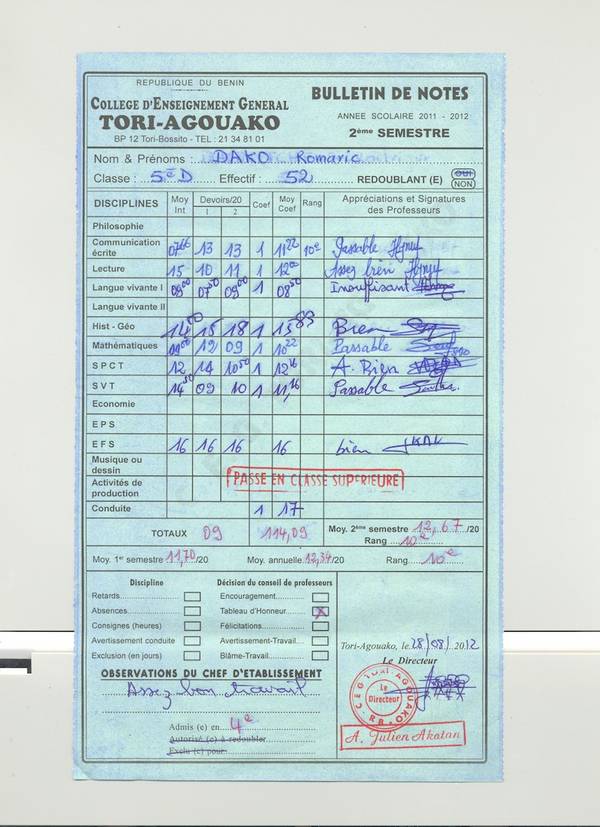 REPUBLIQUE DU BENIN
COLLEGE D'ENSEIGNEMENT GENERAL
TORI-AGOUAKO
BP 12 Tori-Bossito - TEL : 21 34 81 01
BULLETIN DE NOTES
ANNEE SCOLAIRE 2011 - 2012
2ème SEMESTRE
Nom & Prénoms : DAKO Romaric
Classe : 5è D Effectif : 52 REDOUBLANT (E) OUI NON
DISCIPLINES Moy Int Devoirs/20 1 2 Coef Moy Coef Rang Appréciations et Signatures des Professeurs
Philosophie
Communication écrite 07,66 13 13 1 11,22 10è Passable
Lecture 15 10 11 1 12,00 Assez bien
Langue vivante I 09,00 07,50 09,00 1 08,50 Insuffisant
Langue vivante II
Hist - Géo 14,50 15 18 1 15,83 Bien
Mathématiques 12 09 1 10,22 Passable
S P C T 12 14 10,50 1 12,16 A. Bien
S V T 14,50 09 10 1 11,16 Passable
Economie
E P S
E F S 16 16 16 16 bien
Musique ou dessin
Activités de production
PASSE EN CLASSE SUPERIEURE
Conduite 1 17
TOTAUX 09 114,09 Moy. 2ème semestre 12,67/20
Rang 10è
Moy. 1er semestre 11,70/20 Moy. annuelle 12,34/20 Rang 10è
Discipline
Retards
Absences
Consignes (heures)
Avertissement conduite
Exclusion (en jours)
Décision du conseil de professeurs
Encouragement
Tableau d'Honneur X
Félicitations
Avertissement-Travail
Blâme-Travail
OBSERVATIONS DU CHEF D'ETABLISSEMENT
Assez bon travail
Admis (e) en 4è
Autorisé (e) à redoubler
Exclu (e) pour
Tori-Agouako, le 28/08/2012
Le Directeur
C E G TORI-AGOUAKO
Le Directeur
R B
A. Julien Akatan